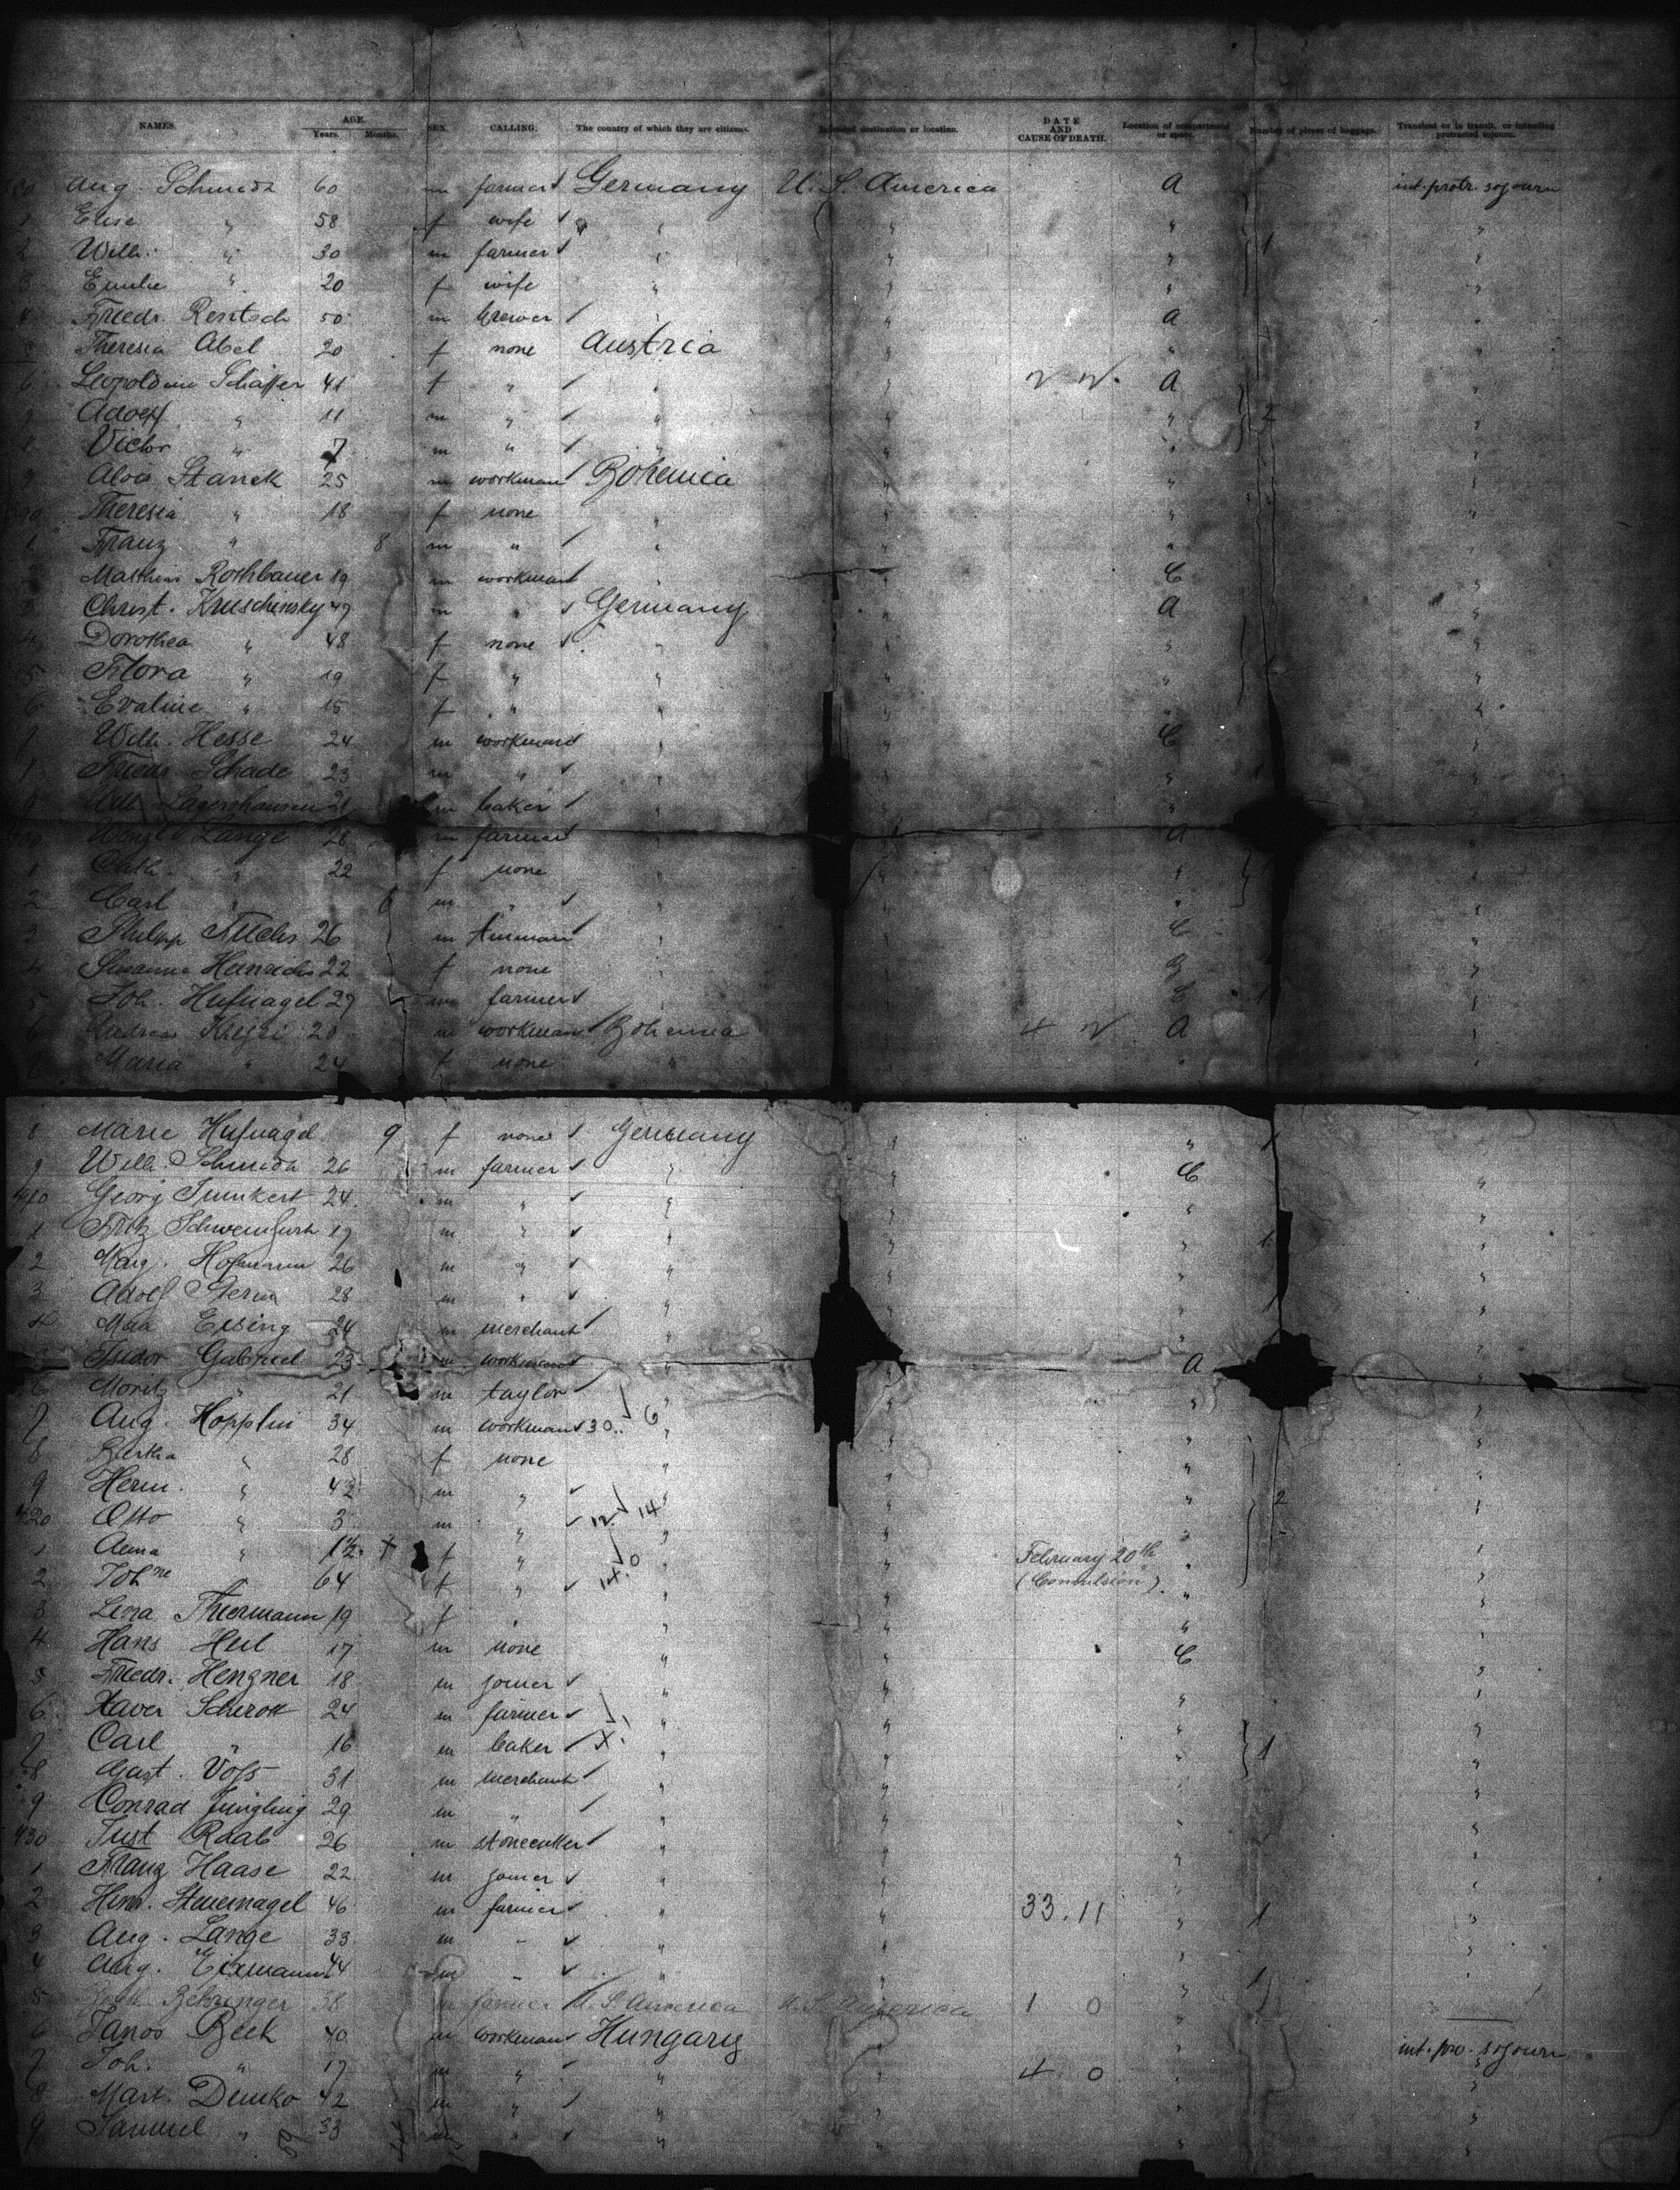 NAMES. AGE. Years. Months. SEX. CALLING. The country of which they are citizens. Intended destination or location. DATE AND CAUSE OF DEATH. Location of compartment or space. Number of pieces of baggage. Transient or in transit, or intending protracted sojourn.
Aug. Schmidt 60 m farmer Germany U. S. America A int. protr. sojourn
1 Elise " 58 f wife " " " " "
2 Wilh. " 30 m farmer " " " 1 "
3 Emilie " 20 f wife " " " "
4 Friedr. Rentsch 50 m brewer " " A "
5 Theresia Abel 20 f none Austria " " "
6 Leopoldine Schäffer 41 f " " " A "
7 Adolf " 11 m " " " " 2 "
8 Victor " 7 m " " " " "
9 Alois Stanek 25 m workman Bohemia " " "
Theresia " 18 f none " " " "
1 Franz " 8 m " " " " "
2 Mathias Rothbauer 19 m workman " " C "
3 Christ. Kruschinsky 47 m " Germany " A "
4 Dorothea " 48 f none " " " "
5 Flora " 19 f " " " " 1 "
6 Evaline " 15 f " " " " "
7 Wilh. Hesse 24 m workman " " C "
Friedr. Schade 23 m " " " " 1 "
9 Wilh. Lagershausen 21 m baker " " " "
Lange 28 m farmer " A "
1 Cath. " 22 f none " " " "
2 Carl " 6 m " " " " "
3 Philipp Fuchs 26 m tinman " " C "
4 Susanna Heinrichs 22 f none " " "
5 Joh. Hufnagel 27 m farmer " C 1 "
6 Andreas Krejci 20 m workman Bohemia " 4 A "
7 Maria " 24 f none " " " "
8 Marie Hufnagel 9 f none Germany " " 1
9 Wilh. Schmidt 26 m farmer " " C "
410 Georg Trunkert 24 m " " " " "
1 Fritz Schweinfurth 19 m " " " " 1 "
2 Marg. Hofmann 26 m " " " " "
3 Adolf Sterin 28 m " " " 1 "
4 Max Eising 24 m merchant " " " "
5 Isidor Gabriel 23 m workman " " A "
6 Moritz " 21 m taylor " " " "
7 Aug. Hopplin 34 m workman 30. 6 " " " "
8 Bertha " 28 f none " " " "
9 Herm. " 4½ m " " " " 2 "
420 Otto " 3 m " 12. 14 " " " "
1 Anna " 1½ + f " " " February 20th (Convulsion) " "
2 Joh.ne " 64 f " 14. 0 " " "
3 Lena Thiermann 19 f " " " " "
4 Hans Heil 17 m none " " C "
5 Friedr. Hengner 18 m joiner " " "
6 Xaver Scherott 24 m farmer " " " "
7 Carl " 16 m baker X " " " 1 "
8 Gust. Voss 31 m merchant " " "
9 Conrad Jüngling 29 m " " " "
430 Just Raab 26 m stonecutter " " " "
1 Franz Haase 22 m joiner " " " "
2 Heinr. Steuernagel 46 m farmer " " 33. 11 " 1 "
3 Aug. Lange 33 m " " " "
4 Aug. Eixmann 44 m " " " " 1
5 Behringer 58 m farmer U. S. America U. S. America 1 0 "
6 Janos Beck 40 m workman Hungary " int. pro. sojourn
7 Joh. " 17 m " " " 4 0 " "
8 Mart. Demko 42 m " " " " "
9 Samuel " 33 m " " " " "